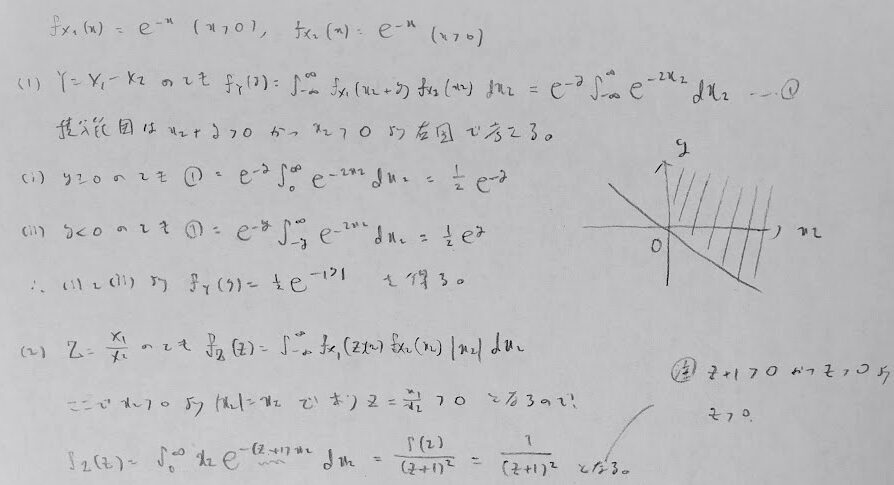 fx₁(x) = e^{-x} (x>0), fx₂(x) = e^{-x} (x>0)
(1) Y = X₁-X₂ のとき f_Y(y) = ∫_{-∞}^{∞} fx₁(x₂+y) fx₂(x₂) dx₂ = e^{-y} ∫_{-∞}^{∞} e^{-2x₂} dx₂ ……①
積分範囲は x₂+y>0 かつ x₂>0 より右図で考える。
(i) y≥0 のとき ① = e^{-y} ∫_0^∞ e^{-2x₂} dx₂ = 1/2 e^{-y}
(ii) y<0 のとき ① = e^{-y} ∫_{-y}^∞ e^{-2x₂} dx₂ = 1/2 e^y
∴ (i)と(ii) より f_Y(y) = 1/2 e^{-|y|} を得る。
y
0
x₂
(2) Z = X₁/X₂ のとき f_Z(z) = ∫_{-∞}^{∞} fx₁(zx₂) fx₂(x₂) |x₂| dx₂
ここで x₂>0 より |x₂|=x₂ であり z = x₁/x₂ > 0 となるので
f_Z(z) = ∫_0^∞ x₂ e^{-(z+1)x₂} dx₂ = Γ(2)/(z+1)² = 1/(z+1)² となる。
注 z+1>0 かつ z>0 より
z>0.